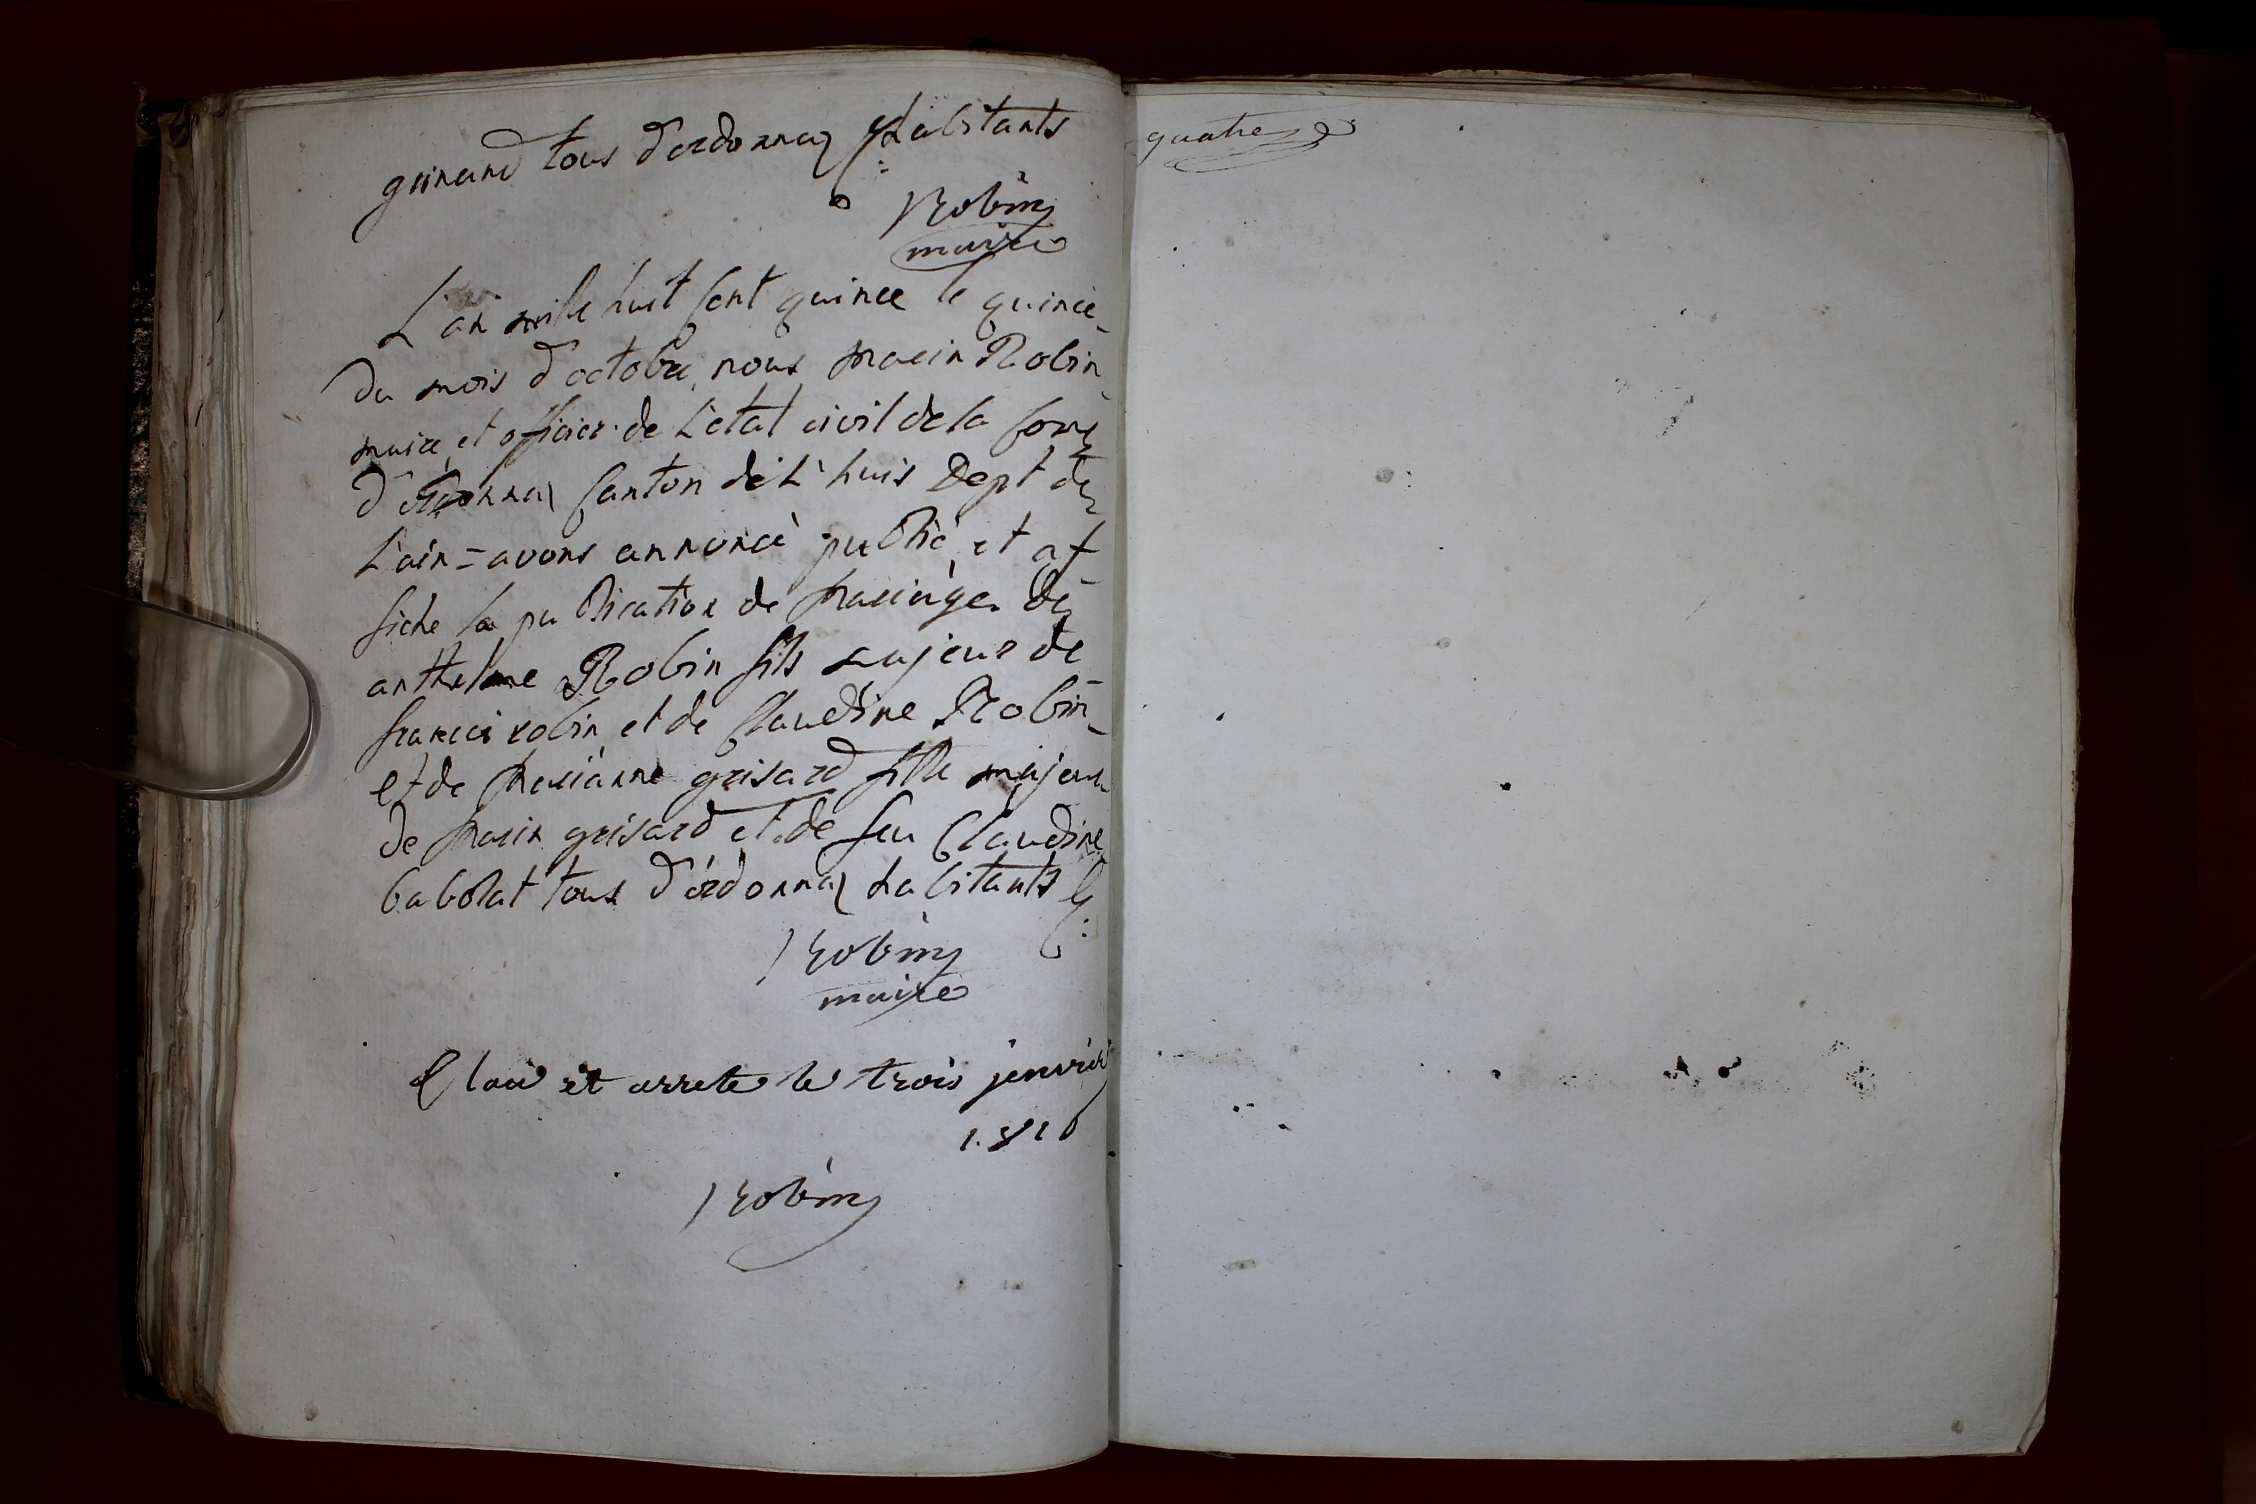 tous d'ordonnaz habitants
Robin
maire
L'an mile huit sent quince le quince
du mois d'octobre, nous marin Robin
maire, et officier de L'etat civil de la
d'ordonnaz Canton de L'huis Dept de
L'ain = avons annoncé publié et af
fiche la publication de mariage de
anthelme Robin fils majeur de
francois robin et de Claudine Robin
et de marianne grisard fille majeur
de marin grisard et de feu Claudine
babolat tous d'ordonnaz habitants
Robin
maire
Clou et arrete le trois jenvier
1.816
Robin
quatre